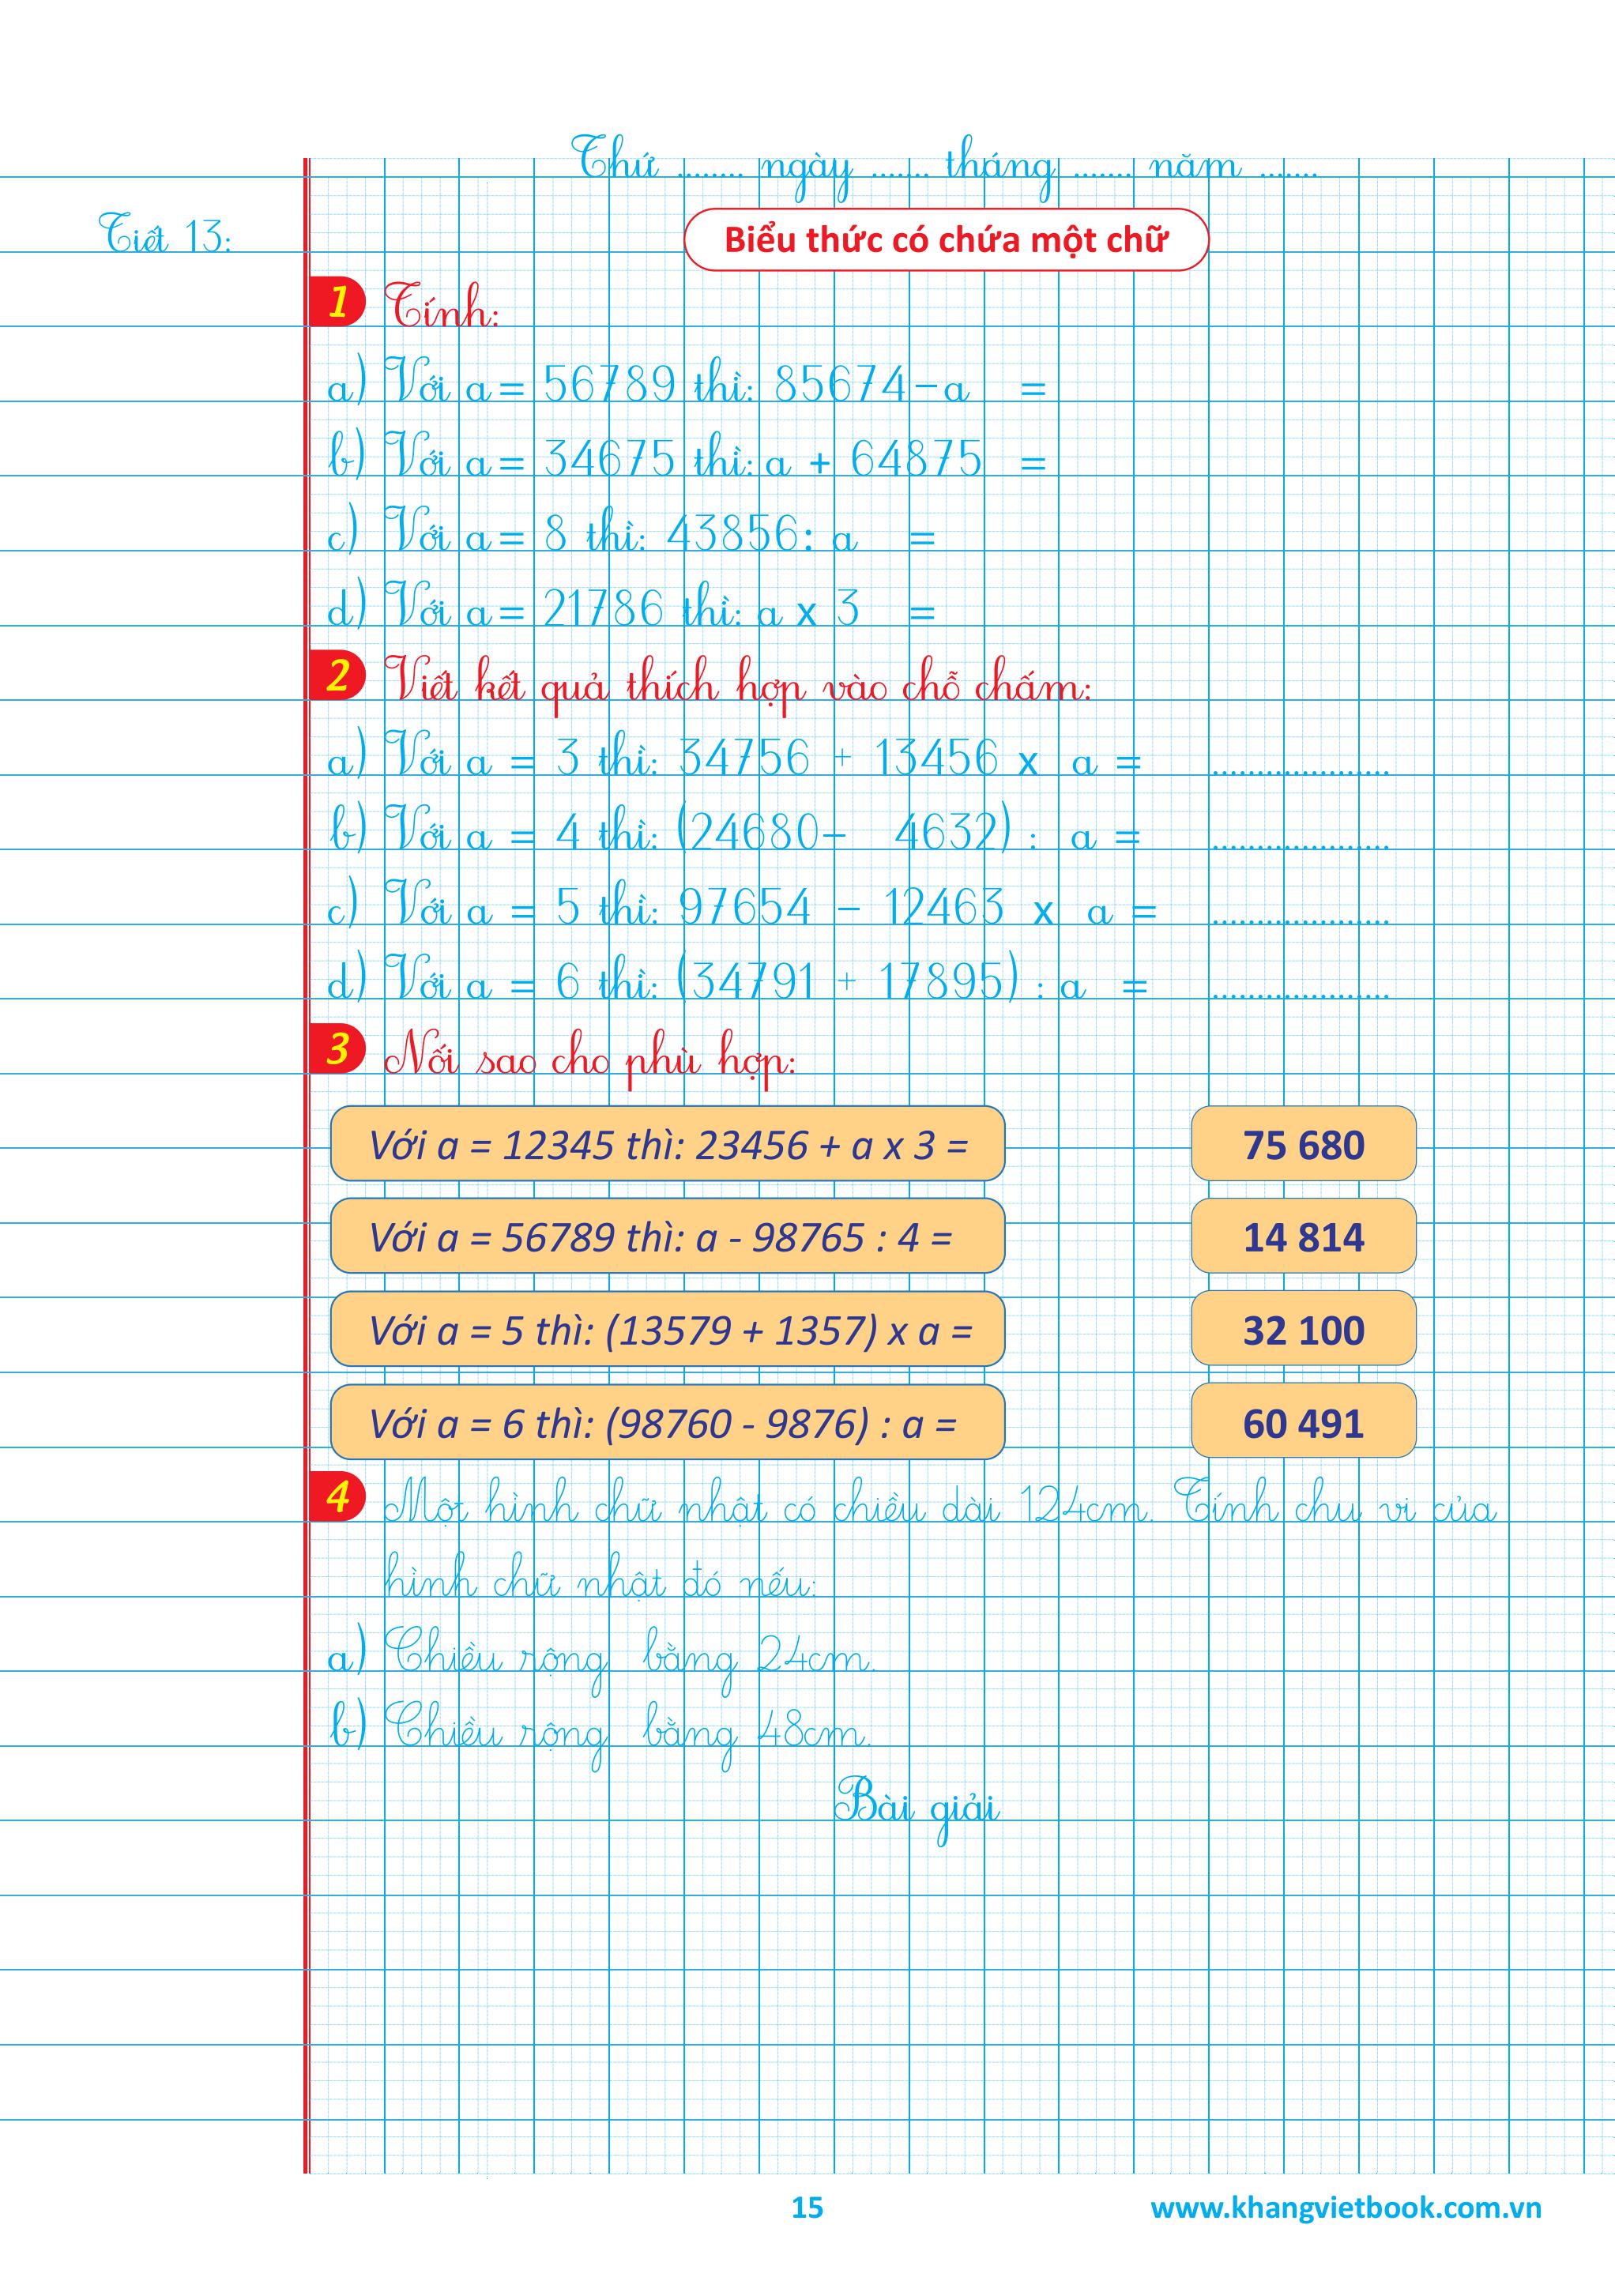 Thứ ........ ngày ....... tháng ....... năm .......
Tiết 13:
Biểu thức có chứa một chữ
1 Tính:
a) Với a = 56789 thì: 85674 - a =
b) Với a = 34675 thì: a + 64875 =
c) Với a = 8 thì: 43856 : a =
d) Với a = 21786 thì: a x 3 =
2 Viết kết quả thích hợp vào chỗ chấm:
a) Với a = 3 thì: 34756 + 13456 x a = ....................
b) Với a = 4 thì: (24680 - 4632) : a = ....................
c) Với a = 5 thì: 97654 - 12463 x a = ....................
d) Với a = 6 thì: (34791 + 17895) : a = ....................
3 Nối sao cho phù hợp:
Với a = 12345 thì: 23456 + a x 3 = 75 680
Với a = 56789 thì: a - 98765 : 4 = 14 814
Với a = 5 thì: (13579 + 1357) x a = 32 100
Với a = 6 thì: (98760 - 9876) : a = 60 491
4 Một hình chữ nhật có chiều dài 124cm. Tính chu vi của
hình chữ nhật đó nếu:
a) Chiều rộng bằng 24cm.
b) Chiều rộng bằng 48cm.
Bài giải
15 www.khangvietbook.com.vn